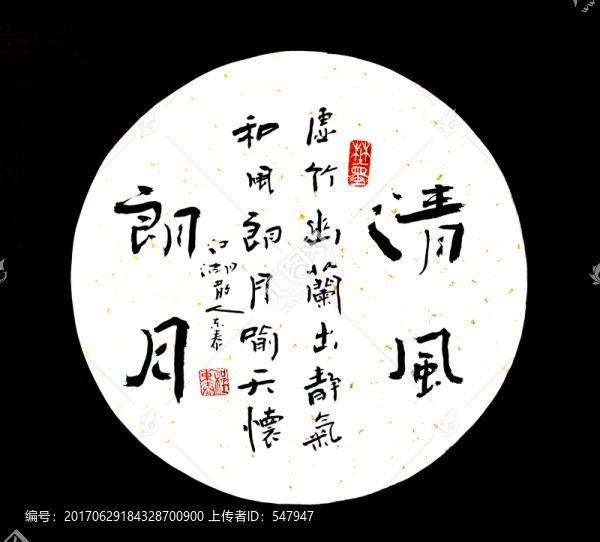 清風
虚竹幽蘭出静氣
和风朗月喻天懷
朗月
江湖散人东泰
编号：20170629184328700900 上传者ID：547947